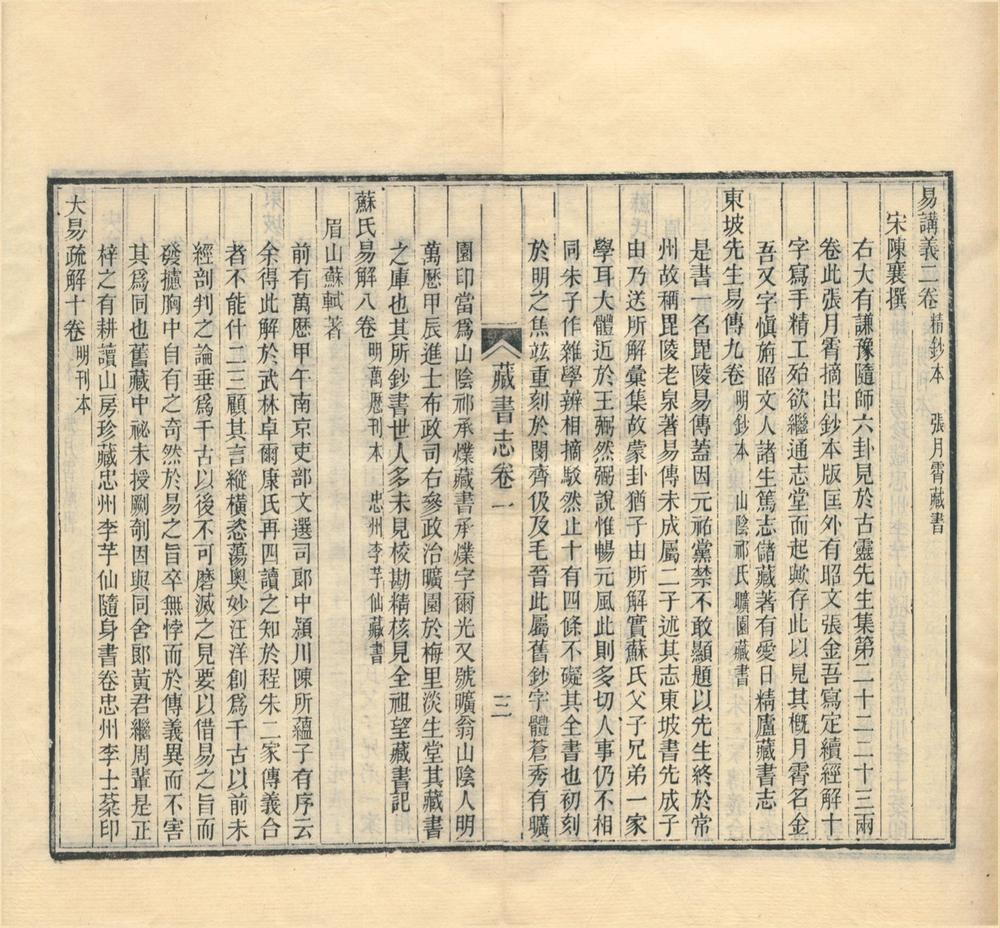 易講義二卷 精鈔本 張月霄藏書
宋陳襄撰
右大有謙豫隨師六卦見於古靈先生集第二十二二十三兩
卷此張月霄摘出鈔本版匡外有昭文張金吾寫定續經解十
字寫手精工殆欲繼通志堂而起歟存此以見其槪月霄名金
吾又字愼旃昭文人諸生篤志儲藏著有愛日精廬藏書志
東坡先生易傳九卷 明鈔本 山陰祁氏曠園藏書
是書一名毘陵易傳蓋因元祐黨禁不敢顯題以先生終於常
州故稱毘陵老泉著易傳未成屬二子述其志東坡書先成子
由乃送所解彙集故蒙卦猶子由所解實蘇氏父子兄弟一家
學耳大體近於王弼然弼說惟暢元風此則多切人事仍不相
同朱子作雜學辨相摘駁然止十有四條不礙其全書也初刻
於明之焦竑重刻於閔齊伋及毛晉此屬舊鈔字體蒼秀有曠
藏書志卷一
三
園印當爲山陰祁承㸁藏書承㸁字爾光又號曠翁山陰人明
萬歷甲辰進士布政司右參政治曠園於梅里淡生堂其藏書
之庫也其所鈔書世人多未見校勘精核見全祖望藏書記
蘇氏易解八卷 明萬歷刊本 忠州李芋仙藏書
眉山蘇軾著
前有萬歷甲午南京吏部文選司郎中潁川陳所蘊子有序云
余得此解於武林卓爾康氏再四讀之知於程朱二家傳義合
者不能什二三顧其言縱橫恣蕩奧妙汪洋創爲千古以前未
經剖判之論垂爲千古以後不可磨滅之見要以借易之旨而
發攄胸中自有之奇然於易之旨卒無悖而於傳義異而不害
其爲同也舊藏中祕未授剞劂因與同舍郎黃君繼周輩是正
梓之有耕讀山房珍藏忠州李芋仙隨身書卷忠州李士棻印
大易疏解十卷 明刊本